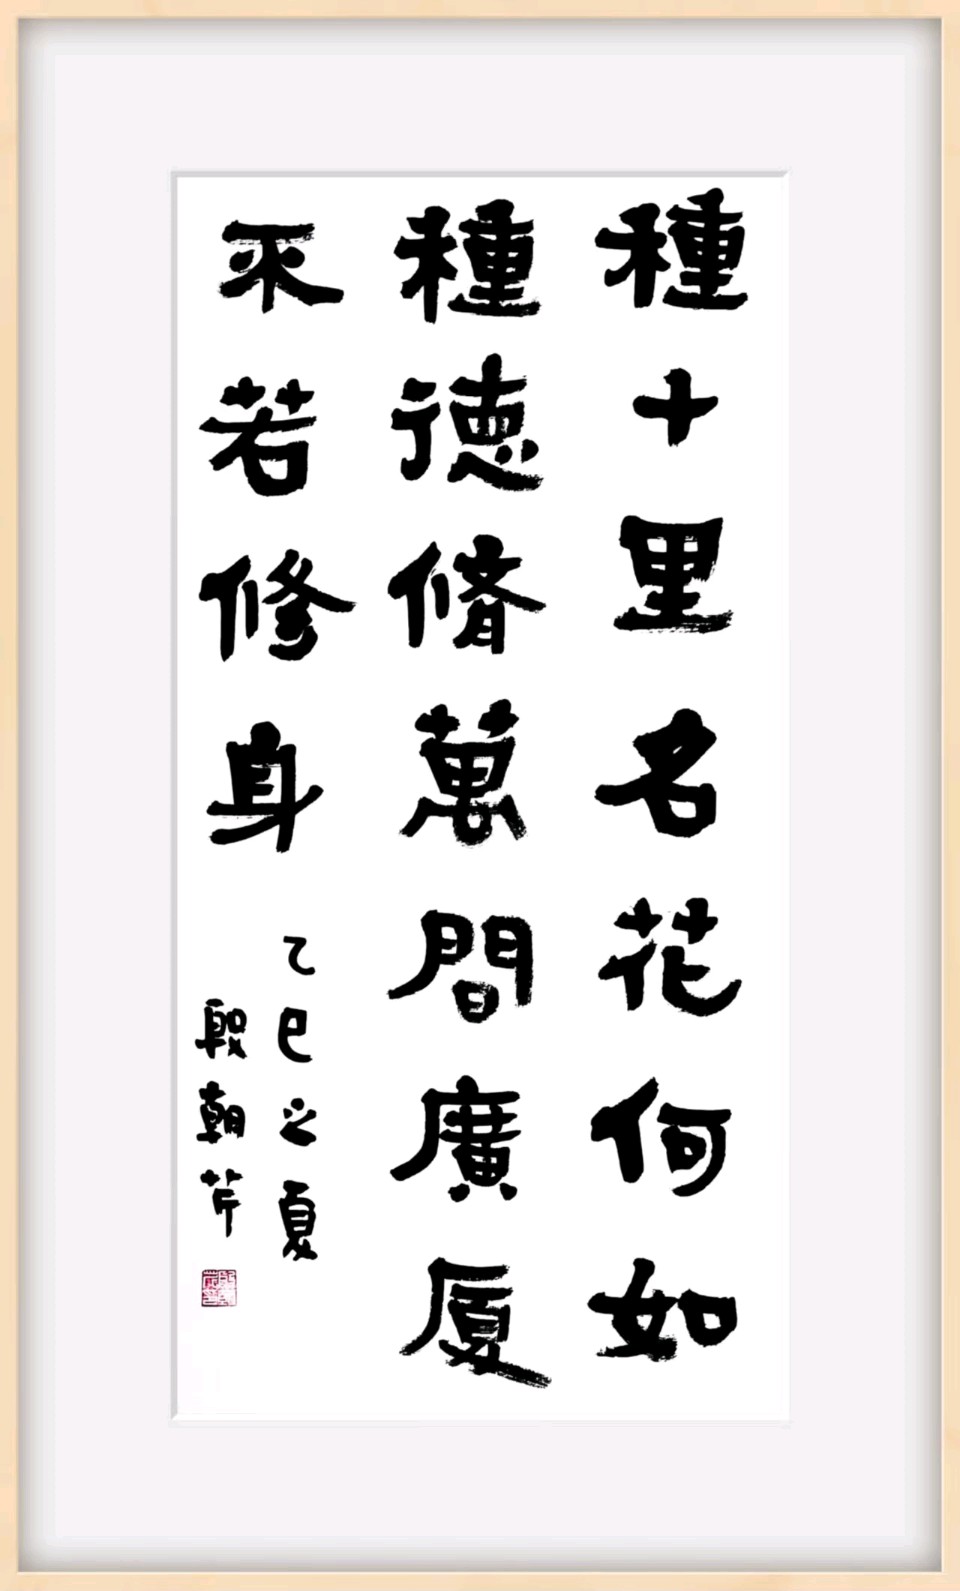 種十里名花何如
種德脩萬間廣厦
不若修身
乙巳之夏
殷朝芹